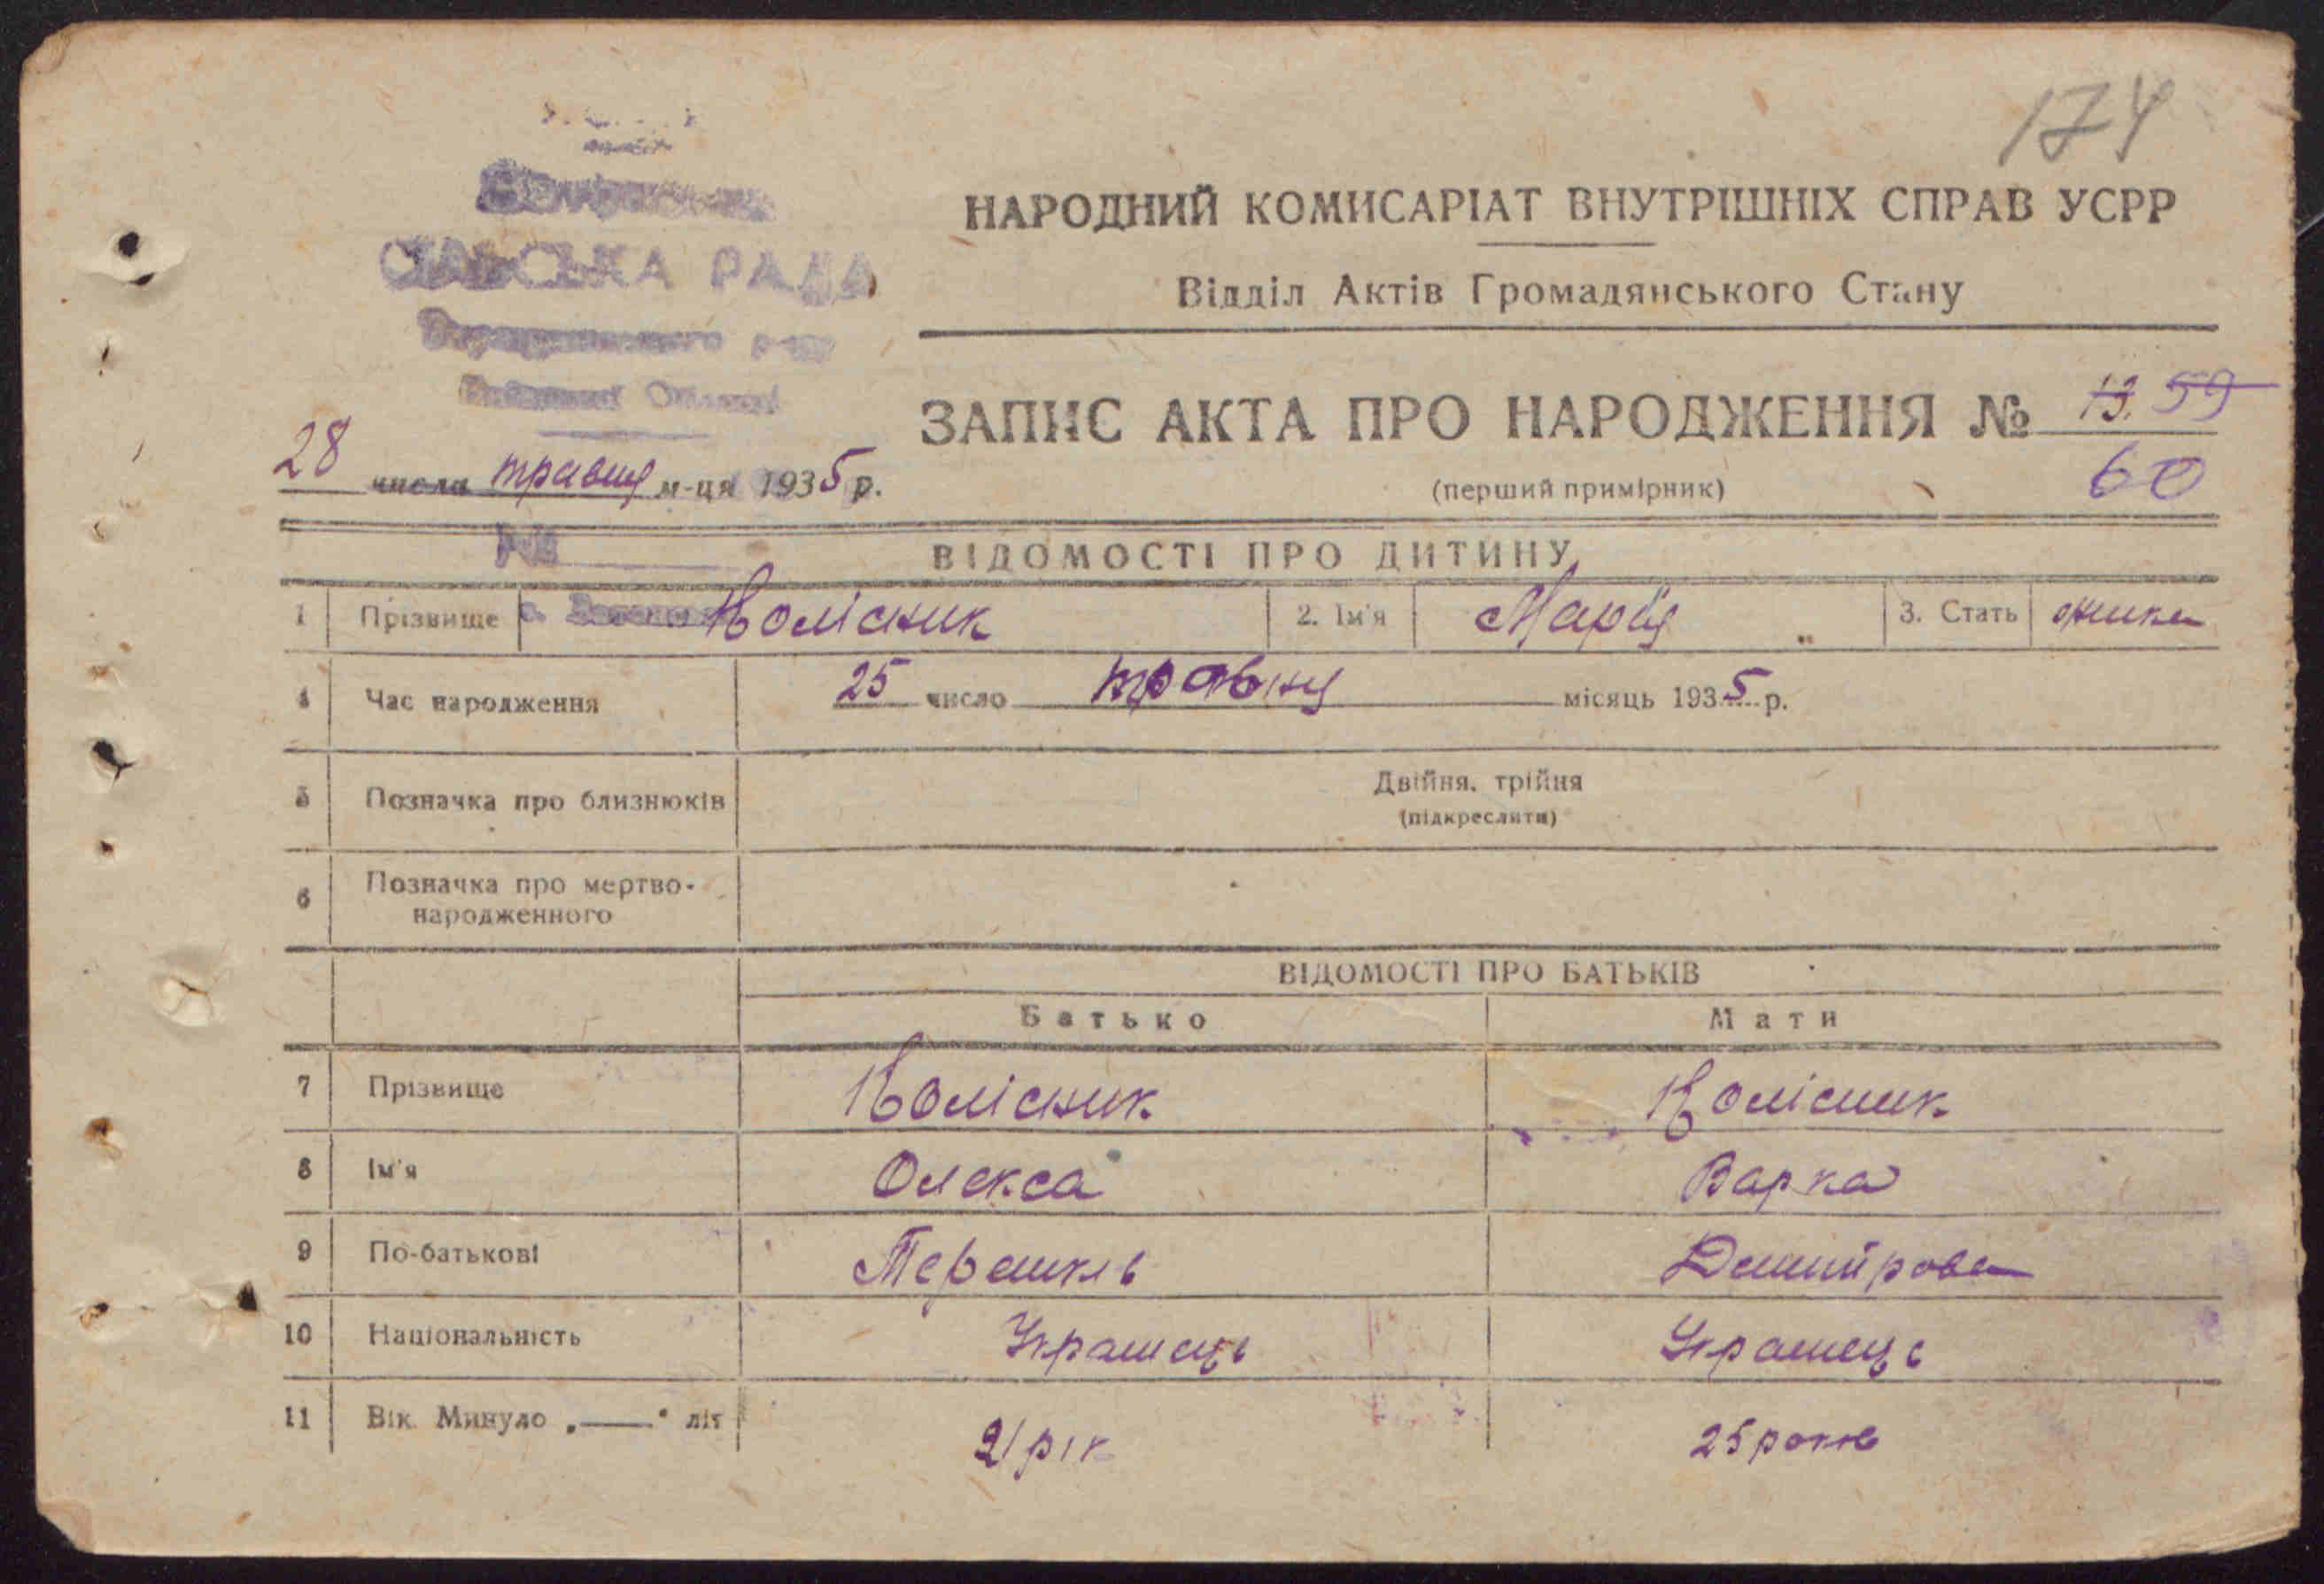 174
СІЛЬСЬКА РАДА
НАРОДНИЙ КОМИСАРІАТ ВНУТРІШНІХ СПРАВ УСРР
Відділ Актів Громадянського Стану
ЗАПИС АКТА ПРО НАРОДЖЕННЯ № 13. 59
60
(перший примірник)
28 числа травня м-ця 1935 р.
№
ВІДОМОСТІ ПРО ДИТИНУ
1 Прізвище Колісник 2. Ім'я Марія 3. Стать жіика
4 Час народження 25 число травня місяць 1935 р.
5 Позначка про близнюків Двійня, трійня
(підкреслити)
6 Позначка про мертво-
народженного
ВІДОМОСТІ ПРО БАТЬКІВ
Батько Мати
7 Прізвище Колісник Колісник
8 Ім'я Олекса Варка
9 По-батькові Дмитрова
10 Національність Українець Українець
11 Вік. Минуло „——" літ 21 рік 25 років